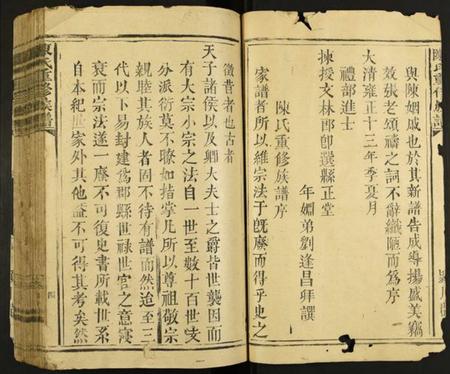 陳氏重修族譜
與陳姻戚也於其新譜告成導揚盛美竊
效張老頌禱之詞不辭譾陋而為序
大清雍正十三年季夏月
禮部進士
揀授文林郎即選縣正堂
年姻弟劉逢昌拜譔
陳氏重修族譜序
家譜者所以維宗法于旣廢而得乎史之
徵昔者也古者
天子諸侯以及卿大夫士之爵皆世襲因而
有大宗小宗之法自一世至數十百世支
分派衍莫不瞭如指掌凡所以尊祖敬宗
親睦其族人者固不待有譜而然迨至三
代以下易封建為郡縣世祿世官之意寖
衰而宗法遂一廢不可復史書所載世系
自本紀世家外其他益不可得其考矣然
陳氏重修族譜
四